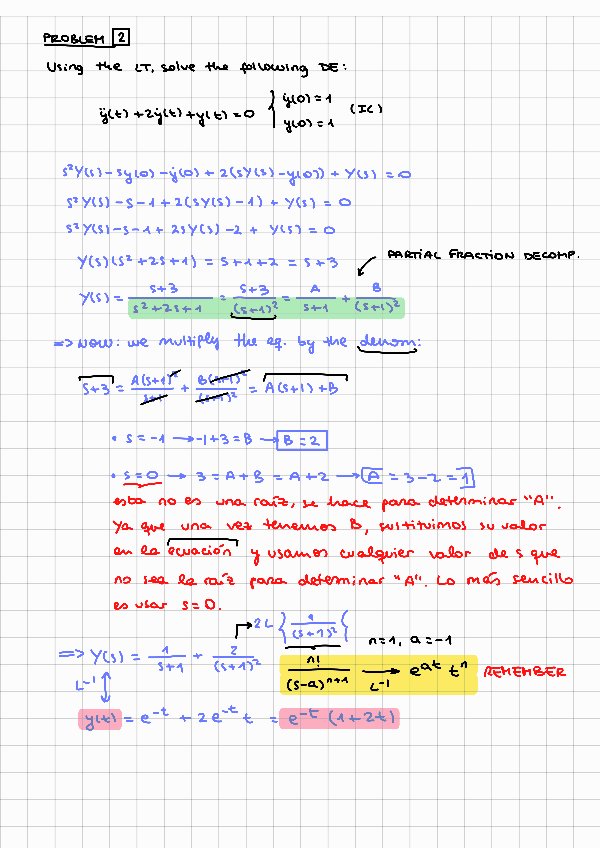 PROBLEM 2
Using the LT, solve the following DE:
ÿ(t) + 2ẏ(t) + y(t) = 0 { ẏ(0) = 1 y(0) = 1 (IC)
s²Y(s) - sy(0) - ẏ(0) + 2(sY(s) - y(0)) + Y(s) = 0
s²Y(s) - s - 1 + 2(sY(s) - 1) + Y(s) = 0
s²Y(s) - s - 1 + 2sY(s) - 2 + Y(s) = 0
Y(s)(s² + 2s + 1) = s + 1 + 2 = s + 3
PARTIAL FRACTION DECOMP.
Y(s) = s+3 / s²+2s+1 = s+3 / (s+1)² = A / s+1 + B / (s+1)²
=> NOW: we multiply the eq. by the denom:
s+3 = A(s+1)² / s+1 + B(s+1)² / (s+1)² = A(s+1) + B
• s = -1 → -1+3 = B → B = 2
• s = 0 → 3 = A + B = A + 2 → A = 3 - 2 = 1
esta no es una raíz, se hace para determinar "A".
Ya que una vez tenemos B, sustituimos su valor
en la ecuación y usamos cualquier valor de s que
no sea la raíz para determinar "A". Lo más sencillo
es usar s = 0.
2L { 1 / (s+1)² {
n=1, a=-1
=> Y(s) = 1 / s+1 + 2 / (s+1)²
n! / (s-a)ⁿ⁺¹ → L⁻¹ e^at tⁿ REMEMBER
L⁻¹
y(t) = e^-t + 2e^-t t = e^-t (1+2t)